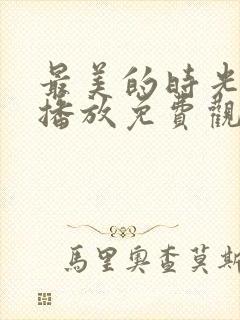 最美的時光
播放免費觀
馬里奧查莫斯